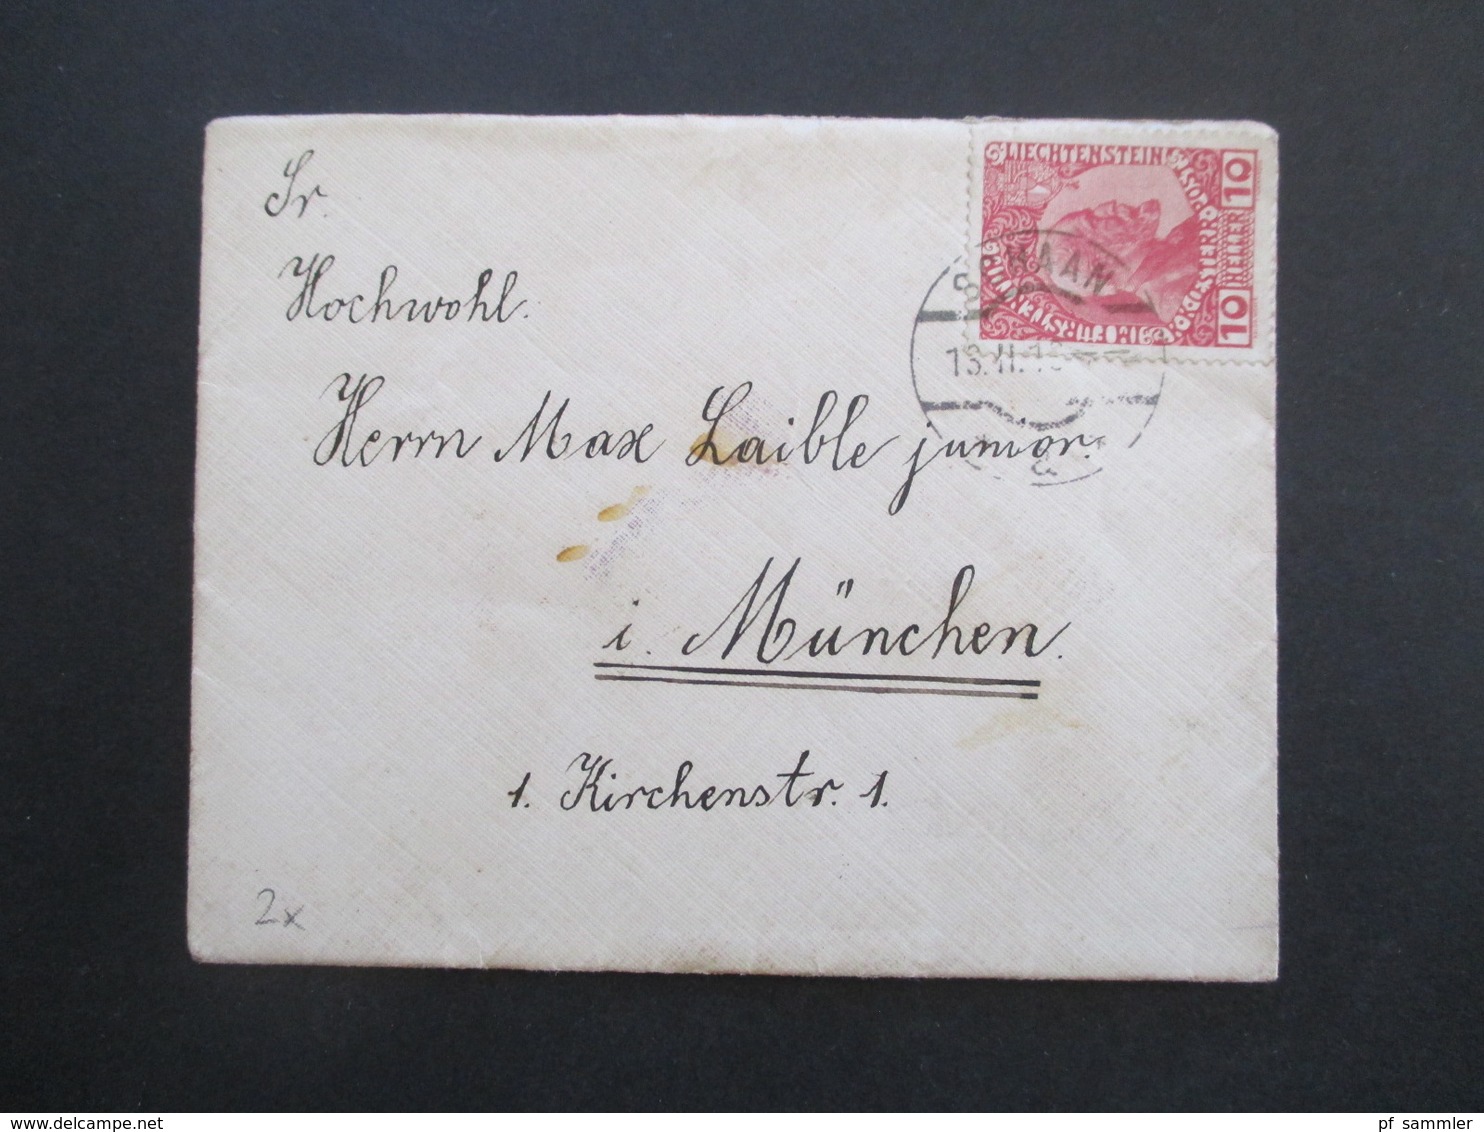 Sr.
Hochwohl.
Herrn Max Laible junior.
i. München.
1. Kirchenstr. 1.
2x
LIECHTENSTEIN
10 HELLER 10
SCHAAN
13.II.13
a
pf_sammler